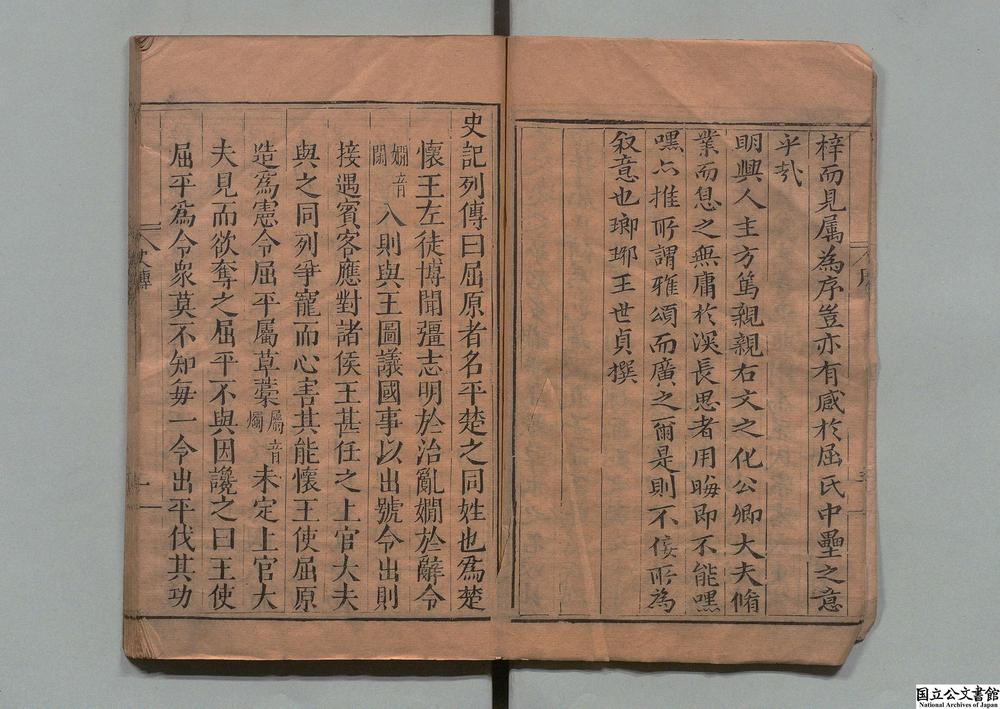 梓而見属為序豈亦有感於屈氏中壘之意
乎哉
明興人主方篤親親右文之化公卿大夫脩
業而息之無庸於深長思者用晦即不能嘿
嘿亦推所謂雅頌而廣之爾是則不佞所為
叙意也瑯琊王世貞撰
史記列傳曰屈原者名平楚之同姓也為楚
懷王左徒博聞彊志明於治亂嫺於辭令
嫺音
閑
入則與王圖議國事以出號令出則
接遇賓客應對諸侯王甚任之上官大夫
與之同列爭寵而心害其能懷王使屈原
造為憲令屈平屬草藁
屬音
燭
未定上官大
夫見而欲奪之屈平不與因讒之曰王使
屈平為令衆莫不知每一令出平伐其功
史傳
一
国立公文書館
National Archives of Japan